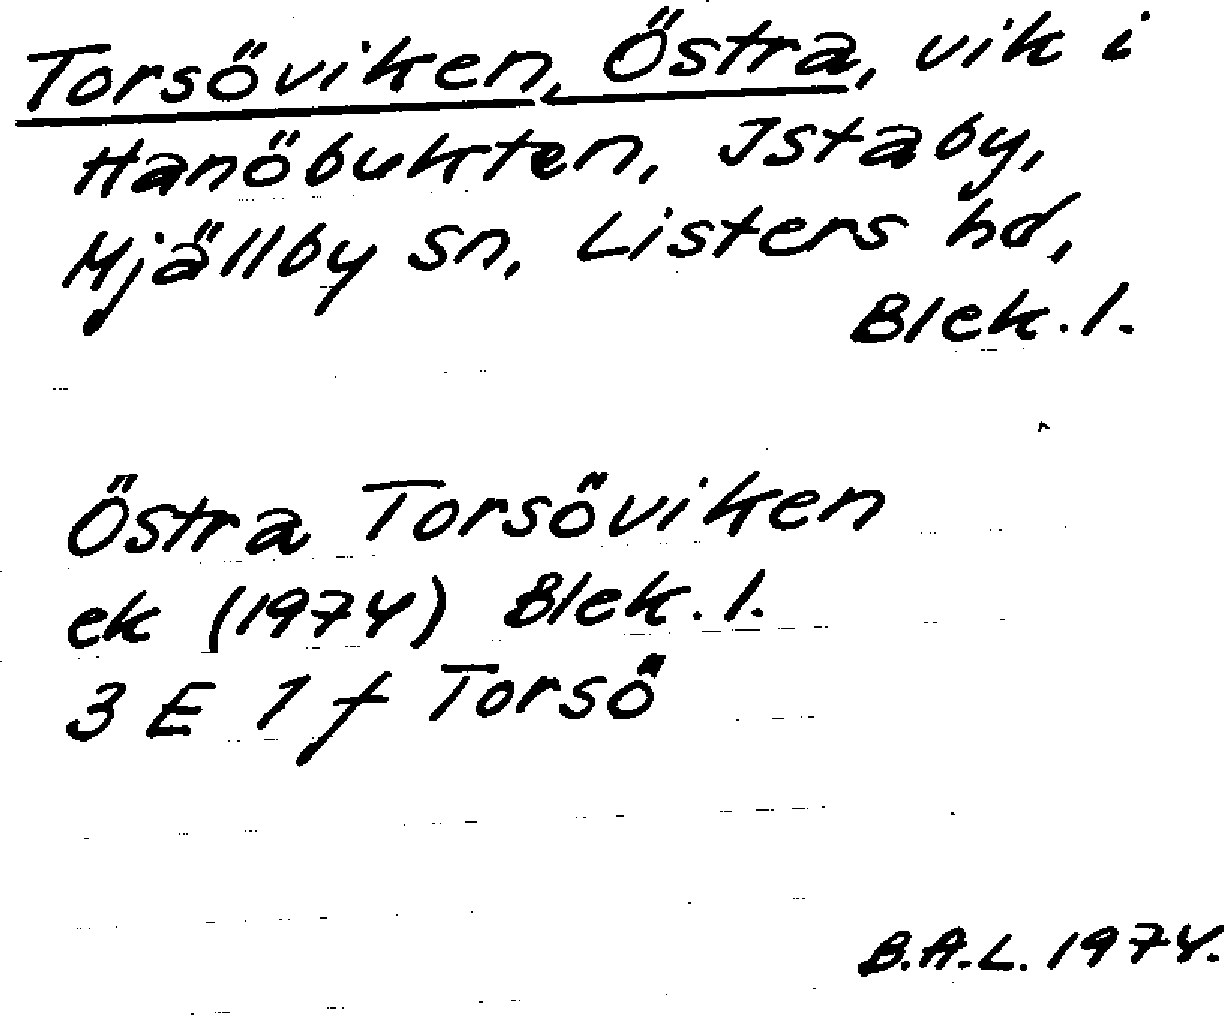 Torsöviken, Östra, vik i
Hanöbukten, Istaby,
Mjällby sn, Listers hd,
Blek.l.
Östra Torsöviken
ek (1974) Blek.l.
3 E 1 f Torsö
B.A.L. 1974.